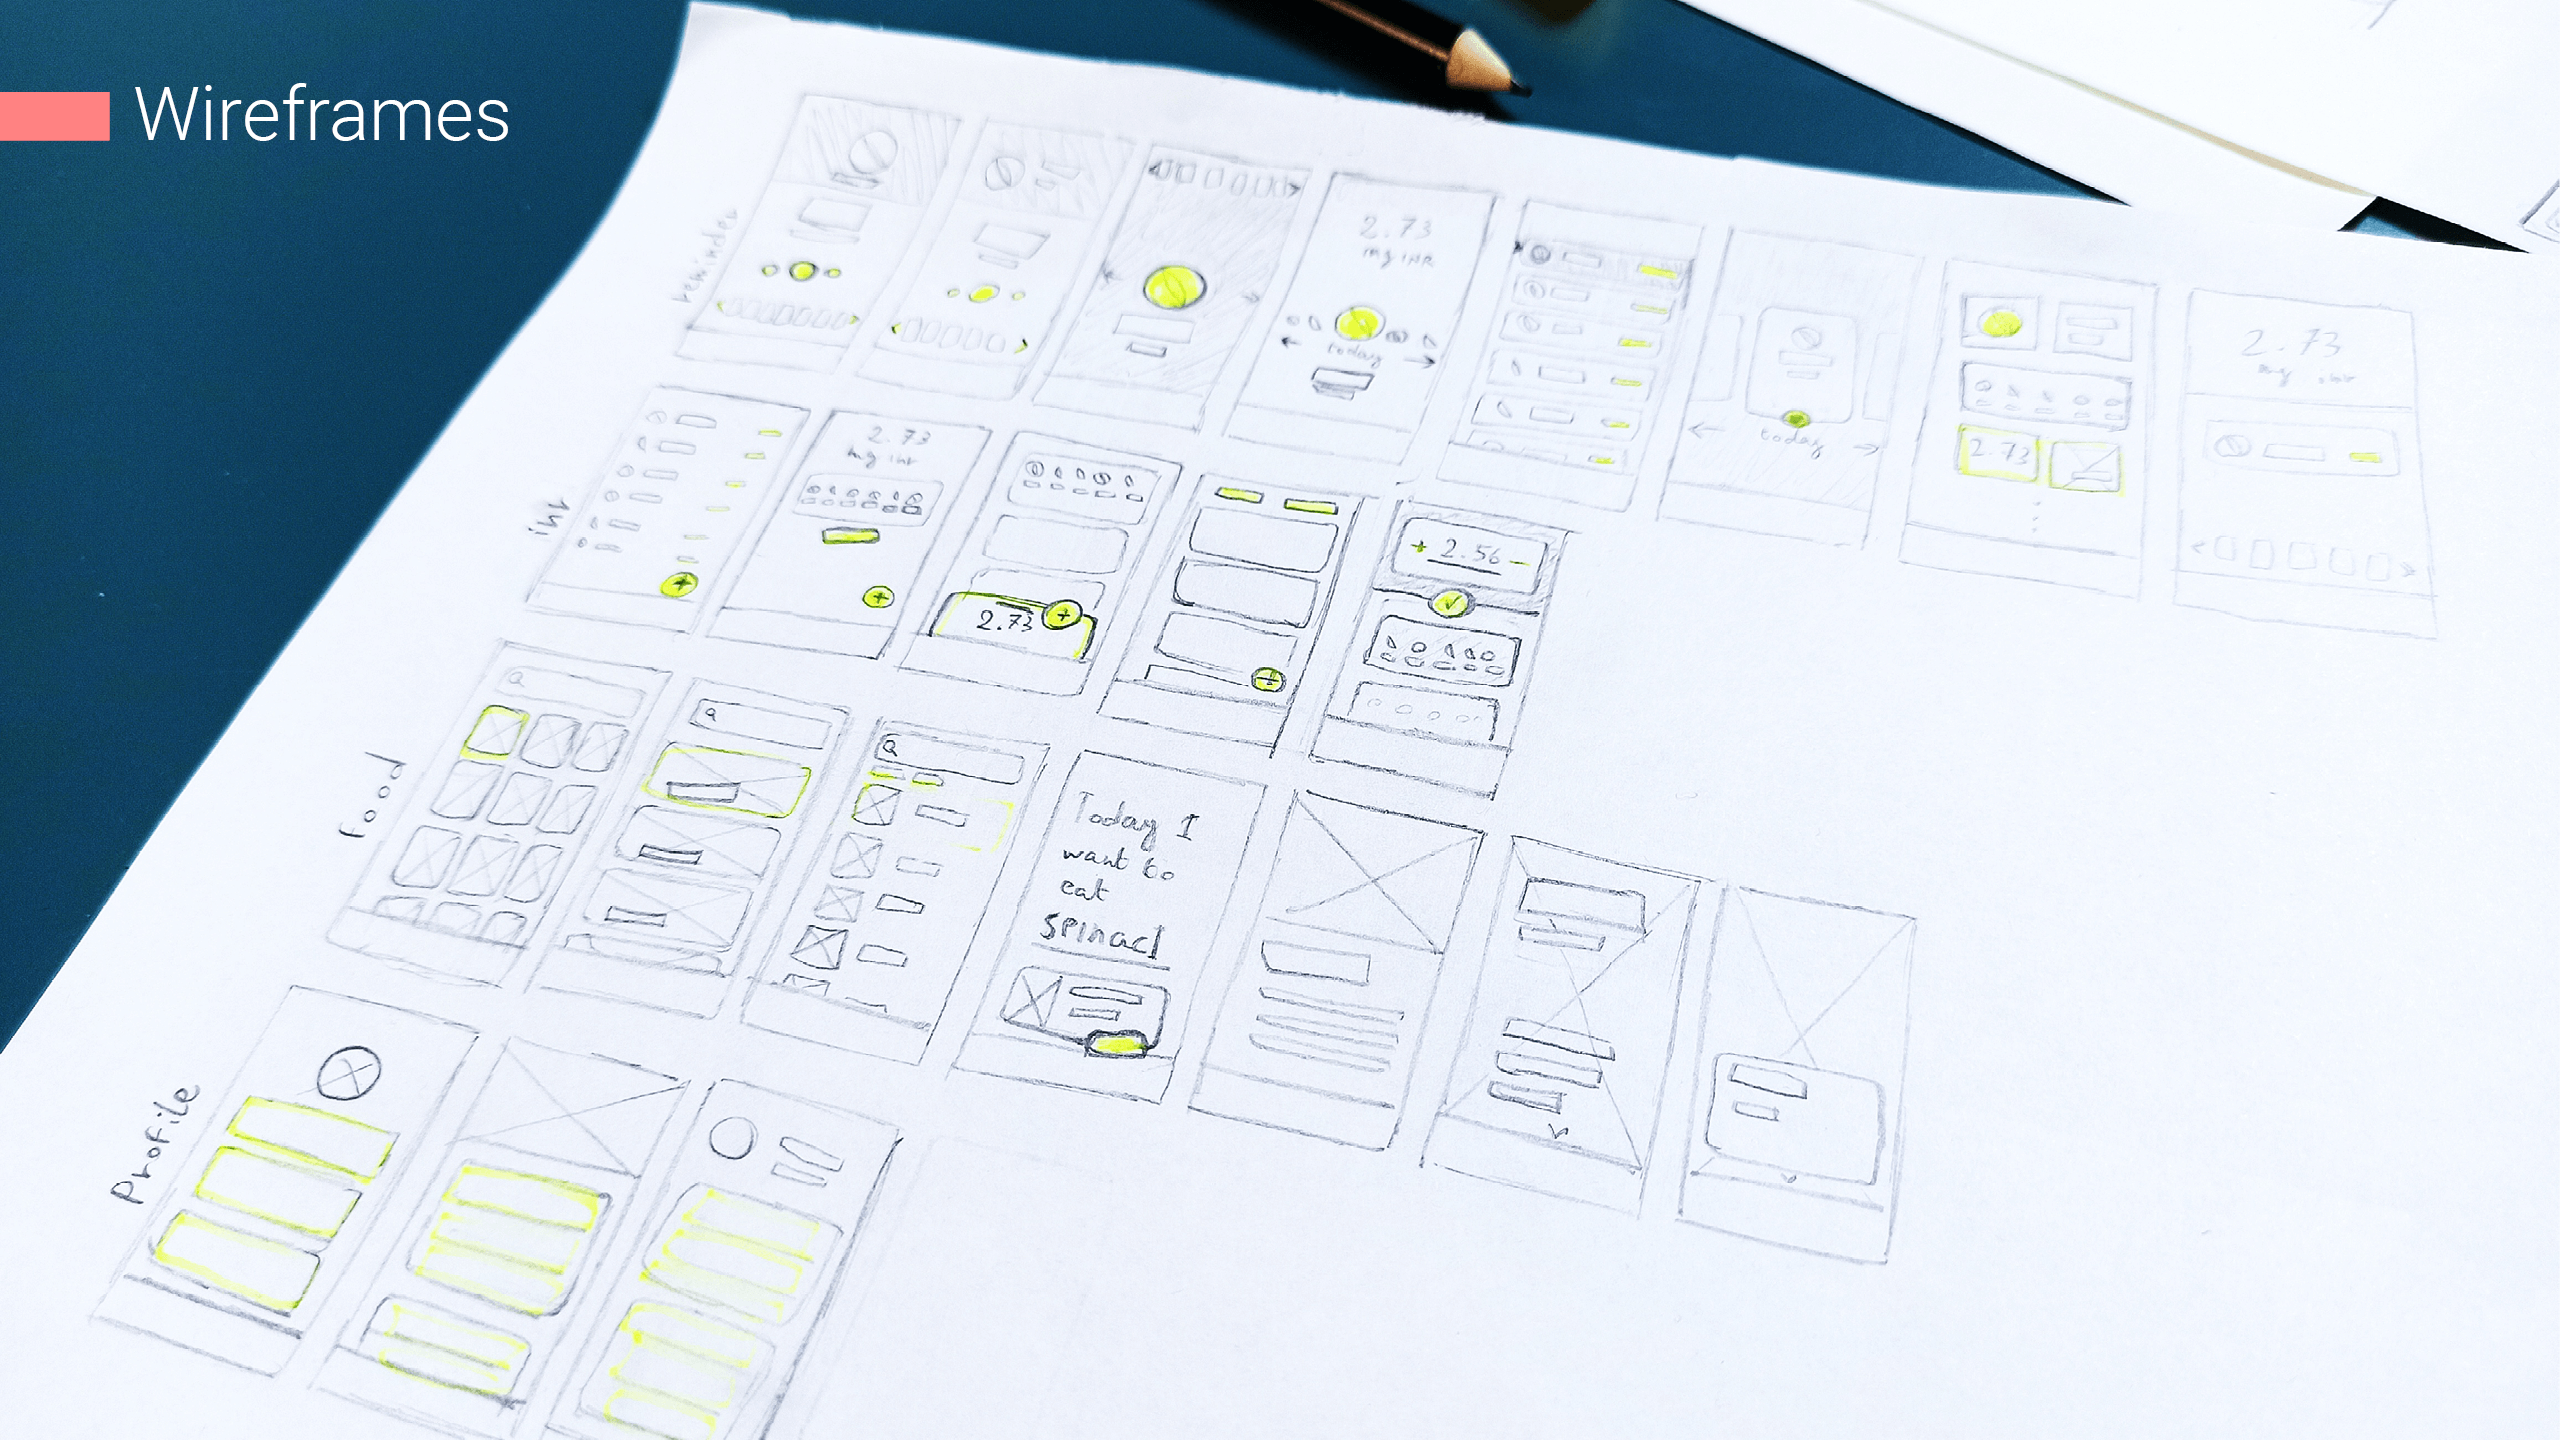 Wireframes
reminder
2.73
mg INR
today
today
2.73
2.73
mg inr
inr
2.73
mg inr
2.73
+ 2.56 -
food
Today I
want to
eat
spinacl
Profile